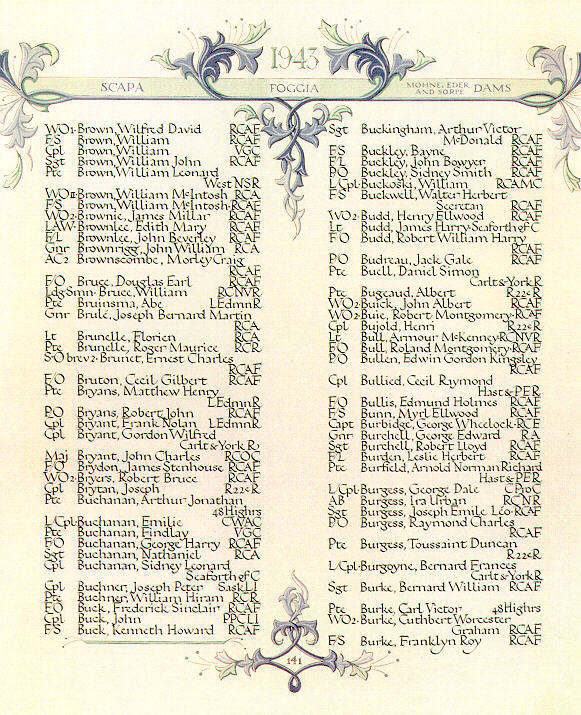 1943
SCAPA
FOGGIA
MOHNE, EDER
AND SORPE DAMS
WO1 Brown, Wilfred David RCAF
F/S Brown, William RCAF
Cpl Brown, William VGC
Sgt Brown, William John RCAF
Pte Brown, William Leonard
West NSR
WOII Brown, William McIntosh RCA
F/S Brown, William McIntosh RCAF
WO2 Brownie, James Millar RCAF
LAW Brownlee, Edith Mary RCAF
F/L Brownlee, John Beverley RCAF
Gnr Brownrigg, John William RCA
AC2 Brownscombe, Morley Craig
RCAF
F/O Bruce, Douglas Earl RCAF
Ldg Smn Bruce, William RCNVR
Pte Bruinsma, Abe LEdmnR
Gnr Brulé, Joseph Bernard Martin
RCA
Lt Brunelle, Florien RCA
Pte Brunelle, Roger Maurice RCR
S/O brev2 Brunet, Ernest Charles
RCAF
F/O Bruton, Cecil Gilbert RCAF
Pte Bryans, Matthew Henry
LEdmnR
P/O Bryans, Robert John RCAF
Cpl Bryant, Frank Nolan LEdmnR
Cpl Bryant, Gordon Wilfred
Carlt & York R
Maj Bryant, John Charles RCOC
F/O Brydon, James Stenhouse RCAF
WO2 Bryers, Robert Bruce RCAF
Cpl Brytan, Joseph R22eR
Pte Buchanan, Arthur Jonathan
48Highrs
L/Cpl Buchanan, Emilie CWAC
Pte Buchanan, Findlay VGC
F/O Buchanan, George Harry RCAF
Sgt Buchanan, Nathaniel RCA
Cpl Buchanan, Sidney Leonard
Seaforth of C
Cpl Buchner, Joseph Peter SaskLI
Pte Buchner, William Hiram RCR
F/O Buck, Frederick Sinclair RCAF
Cpl Buck, John PPCLI
F/S Buck, Kenneth Howard RCAF
Sgt Buckingham, Arthur Victor
McDonald RCAF
F/S Buckley, Bayne RCAF
F/L Buckley, John Bowyer RCAF
P/O Buckley, Sidney Smith RCAF
L/Cpl Buckoski, William RCAMC
F/S Buckwell, Walter Herbert
Secretan RCAF
WO2 Budd, Henry Ellwood RCAF
Lt Budd, James Harry Seaforth of C
F/O Budd, Robert William Harry
RCAF
P/O Budreau, Jack Gale RCAF
Pte Buell, Daniel Simon
Carlt & York R
Pte Bugeaud, Albert R22eR
WO2 Buick, John Albert RCAF
WO2 Buie, Robert Montgomery RCAF
Cpl Bujold, Henri R22eR
Lt Bull, Armour McKenney RCNVR
F/O Bull, Roland Montgomery RCAF
P/O Bullen, Edwin Gordon Kingsley
RCAF
Cpl Bullied, Cecil Raymond
Hast & PER
F/O Bullis, Edmund Holmes RCAF
F/S Bunn, Myrl Ellwood RCAF
Capt Burbidge, George Wheelock RCE
Gnr Burchell, George Edward RA
Sgt Burchell, Robert Lloyd RCAF
F/L Burden, Leslie Herbert RCAF
Pte Burfield, Arnold Norman Richard
Hast & PER
L/Cpl Burgess, George Dale CProC
AB Burgess, Ira Urban RCNR
Sgt Burgess, Joseph Emile Léo RCAF
P/O Burgess, Raymond Charles
RCAF
Pte Burgess, Toussaint Duncan
R22eR
L/Cpl Burgoyne, Bernard Frances
Carlt & York R
Sgt Burke, Bernard William RCAF
Pte Burke, Carl Victor 48Highrs
WO2 Burke, Cuthbert Worcester
Graham RCAF
F/S Burke, Franklyn Roy RCAF
141